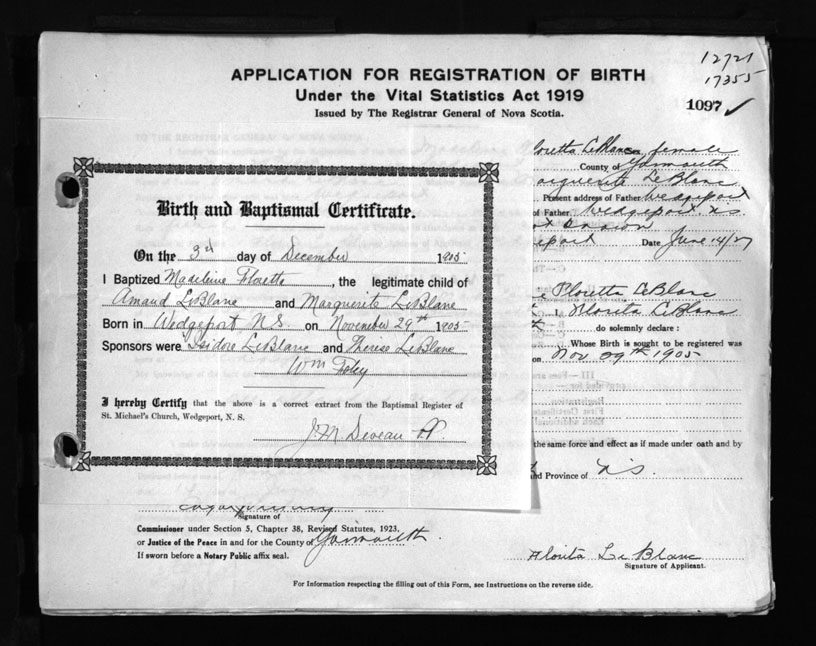 12721
17355
APPLICATION FOR REGISTRATION OF BIRTH
Under the Vital Statistics Act 1919
1097 ✓
Issued by The Registrar General of Nova Scotia.
Birth and Baptismal Certificate.
On the 3rd day of December 1905
I Baptized Madeleine Florette, the legitimate child of
Amand LeBlanc and Marguerite LeBlanc
Born in Wedgeport N.S. on November 29th 1905
Sponsors were Isidore LeBlanc and Thérèse LeBlanc
Wm Foley
I hereby Certify that the above is a correct extract from the Baptismal Register of
St. Michael's Church, Wedgeport, N. S.
loretta LeBlanc, female
County of Yarmouth
arguerite LeBlanc
Present address of Father Wedgeport
of Father Wedgeport N.S.
eport Date June 14/27
Floretta LeBlanc
I, Florita LeBlanc
do solemnly declare :
Whose Birth is sought to be registered was
on Nov 29th 1905
the same force and effect as if made under oath and by
nd Province of N.S.
Signature of
Commissioner under Section 5, Chapter 38, Revised Statutes, 1923.
or Justice of the Peace in and for the County of Yarmouth.
If sworn before a Notary Public affix seal.
Florita LeBlanc
Signature of Applicant.
For Information respecting the filling out of this Form, see Instructions on the reverse side.